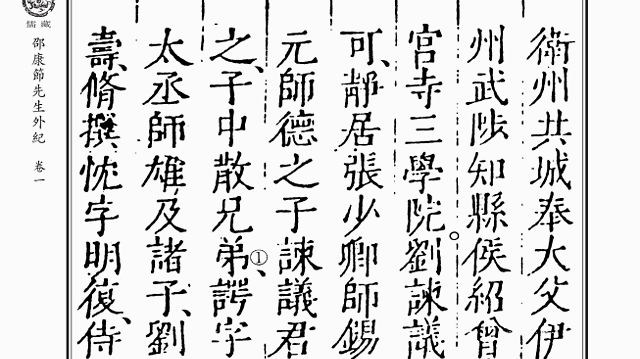 衛州共城奉大父伊
州武陟知縣侯紹曾
官寺三學院。劉諫議
可、靜居張少卿師錫
元師德之子諫議君
之、子中散兄弟①、諤字
太丞師雄及諸子、劉
壽、脩撰、忱字明復、侍
儒藏
邵康節先生外紀 卷一